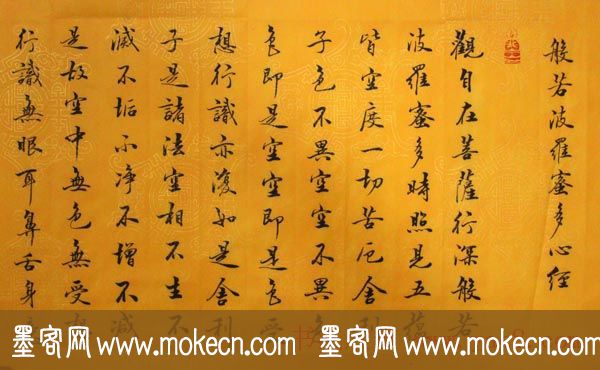 般若波羅蜜多心經
觀自在菩薩行深般若
波羅蜜多時照見五蘊
皆空度一切苦厄舍
子色不異空空不異色
色即是空空即是色受
想行識亦復如是舍利
子是諸法空相不生不
滅不垢不净不增不減
是故空中無色無受
行識無眼耳鼻舌身
墨客网 www.mokecn.com 墨客网 www.mokecn.com